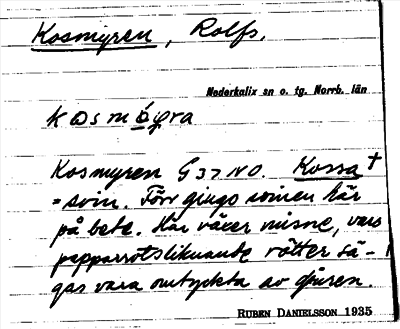 Kosmyren, Rolfs.
Nederkalix sn o. tg. Norrb. län
Kosmyren G 37 NO. Kossa +
= svin. Förr gingo svinen här
på bete. Här växer missne, vars
pepparrotsliknande rötter sä-
gas vara omtyckta av djuren.
RUBEN DANIELSSON 1935